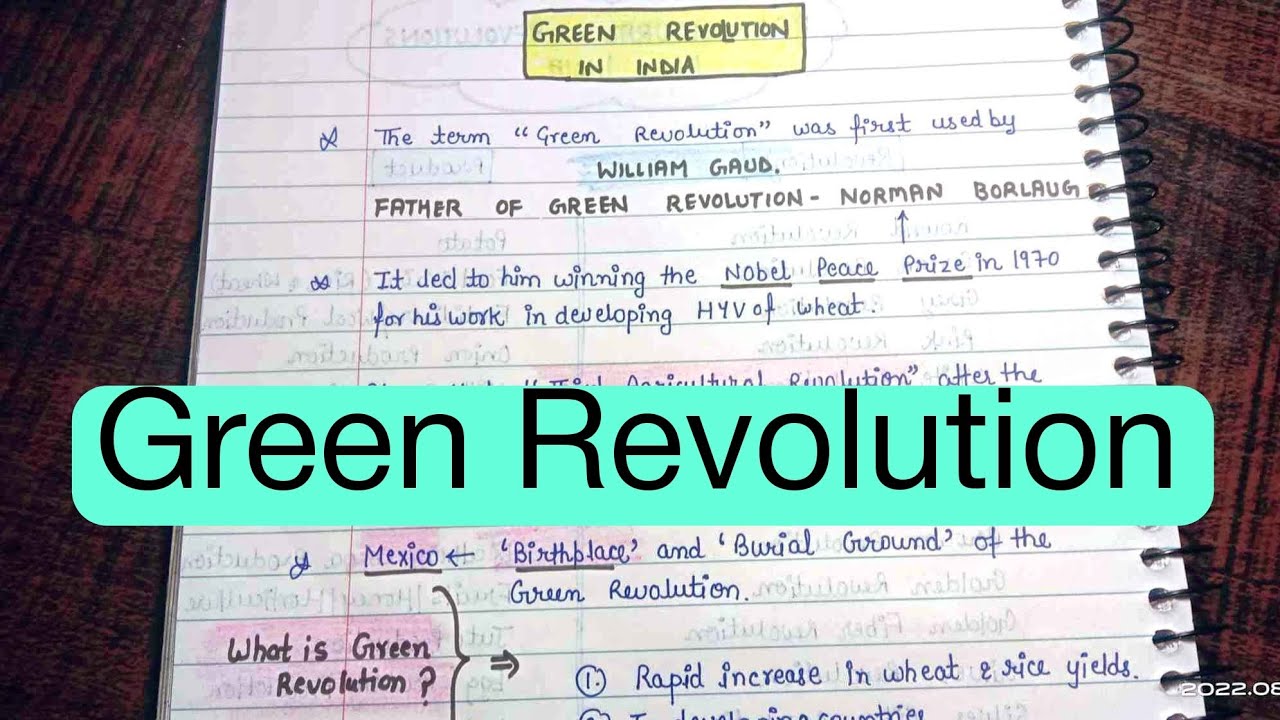 GREEN REVOLUTION
IN INDIA
The term "Green Revolution" was first used by
WILLIAM GAUD.
FATHER OF GREEN REVOLUTION - NORMAN BORLAUG
It led to him winning the Nobel Peace Prize in 1970
for his work in developing HYV of wheat.
Agricultural Revolution" after the
Green Revolution
Mexico ← 'Birthplace' and 'Burial Ground' of the
Green Revolution.
What is Green
Revolution?
⇒ 1. Rapid increase in wheat & rice yields.
developing countries
2022.08